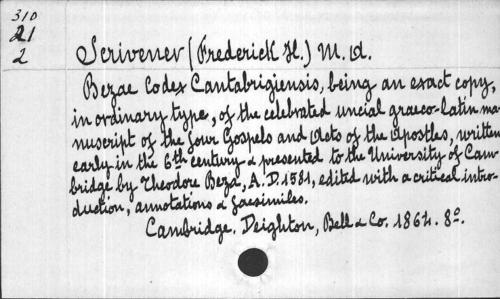 310
21
2
Scrivener (Frederick H.) M. A.
Bezae Codex Cantabrigiensis, being an exact copy,
in ordinary type, of the celebrated uncial graeco-latin ma-
nuscript of the four Gospels and Acts of the Apostles, written
early in the 6th century & presented to the University of Cam-
bridge by Theodore Beza, A.D. 1581, edited with a critical intro-
duction, annotations & facsimiles.
Cambridge. Deighton, Bell & Co. 1864. 8º.